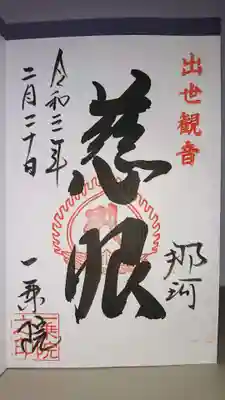 出世観音
那珂
慈眼
令和三年
二月二十日
一乗院